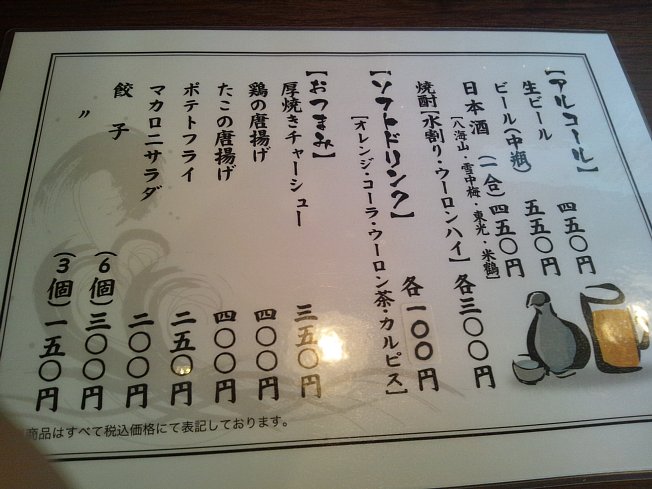 【アルコール】
生ビール 四五〇円
ビール(中瓶) 五五〇円
日本酒(一合) 四五〇円
[八海山・雪中梅・東光・米鶴]
焼酎[水割り・ウーロンハイ] 各三〇〇円
【ソフトドリンク】 各一〇〇円
[オレンジ・コーラ・ウーロン茶・カルピス]
【おつまみ】
厚焼きチャーシュー 三五〇円
鶏の唐揚げ 四〇〇円
たこの唐揚げ 四〇〇円
ポテトフライ 二五〇円
マカロニサラダ 二〇〇円
餃子 (6個) 三〇〇円
〃 (3個) 一五〇円
商品はすべて税込価格にて表記しております。